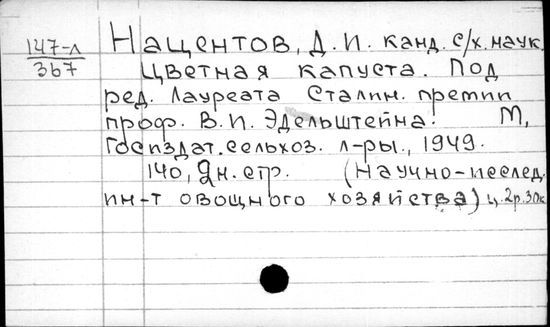 147-л
367
Нацентов, Д.И. канд. с/х. наук.
Цветная капуста. Под
ред. Лауреата Сталин. премии
проф. В.И. Эдельштейна. М,
Госиздат. сельхоз. л-ры., 1949.
140, 2н. стр. (Научно-исслед.
ин-т овощного хозяйства) ц. 2р.30к